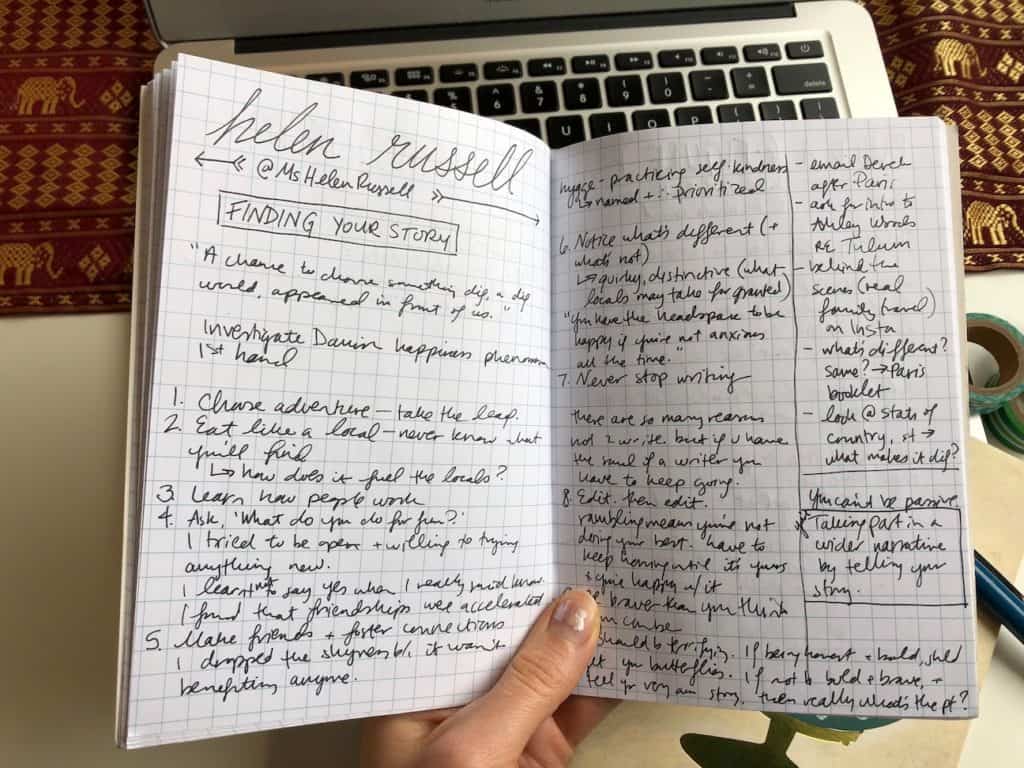 helen russell
@MsHelenRussell
FINDING YOUR STORY
"A chance to choose something dif, a dif
world, appeared in front of us."
Investigate Danish happiness phenomenon
1st hand
1. Choose adventure – take the leap.
2. Eat like a local – never know what
you'll find
↳ how does it fuel the locals?
3. Learn how people work
4. Ask, 'What do you do for fun?'
I tried to be open + willing to trying
anything new.
I learnt to say yes when I really
I found that friendships were accelerated
5. Make friends + foster connections
I dropped the shyness b/c it wasn't
benefiting anyone.
hygge - practicing self-kindness
↳ named + ∴ prioritized
6. Notice what's different (+
what's not)
↳ quirky, distinctive (what
locals may take for granted)
"you have the headspace to be
happy if you're not anxious
all the time."
7. Never stop writing
there are so many reasons
not 2 write. but if u have
the soul of a writer you
have to keep going.
8. Edit. then edit.
rambling means you're not
doing your best. have to
keep honing until it's yours
+ you're happy w/ it
braver than you think
can be
should b terrifying. If being honest + bold, shld
you butterflies. If not b bold + brave, +
feel for very own story, then really what's the pt?
- email Derek
after Paris
- ask for intro to
Words
RE. Tulum
- behind the
scenes (real
family travel)
on Insta
- what's different?
same? → Paris
booklet
- look @ stats of
country, st →
what makes it dif?
You can't be passive.
* Taking part in a
wider narrative
by telling your
story.
U
I
O
6
7
8
9
0
delete